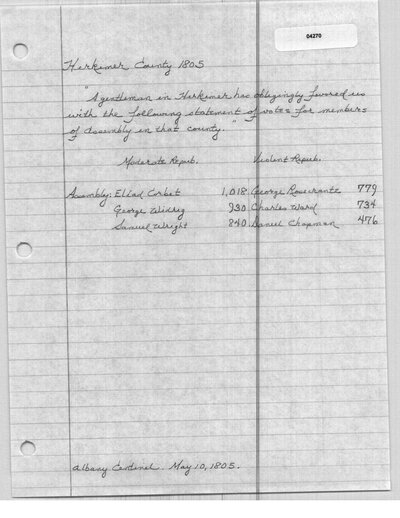 04270
Herkimer County 1805
"A gentleman in Herkimer has obligingly favored us
with the following statement of votes for members
of Assembly in that county."
Moderate Repub. Violent Repub.
Assembly: Eliad Corbet 1,018. George Rosecrantz 779
George Widrig 930. Charles Ward 734
Samuel Wright 840. Daniel Chapman 476
Albany Centinel. May 10, 1805.